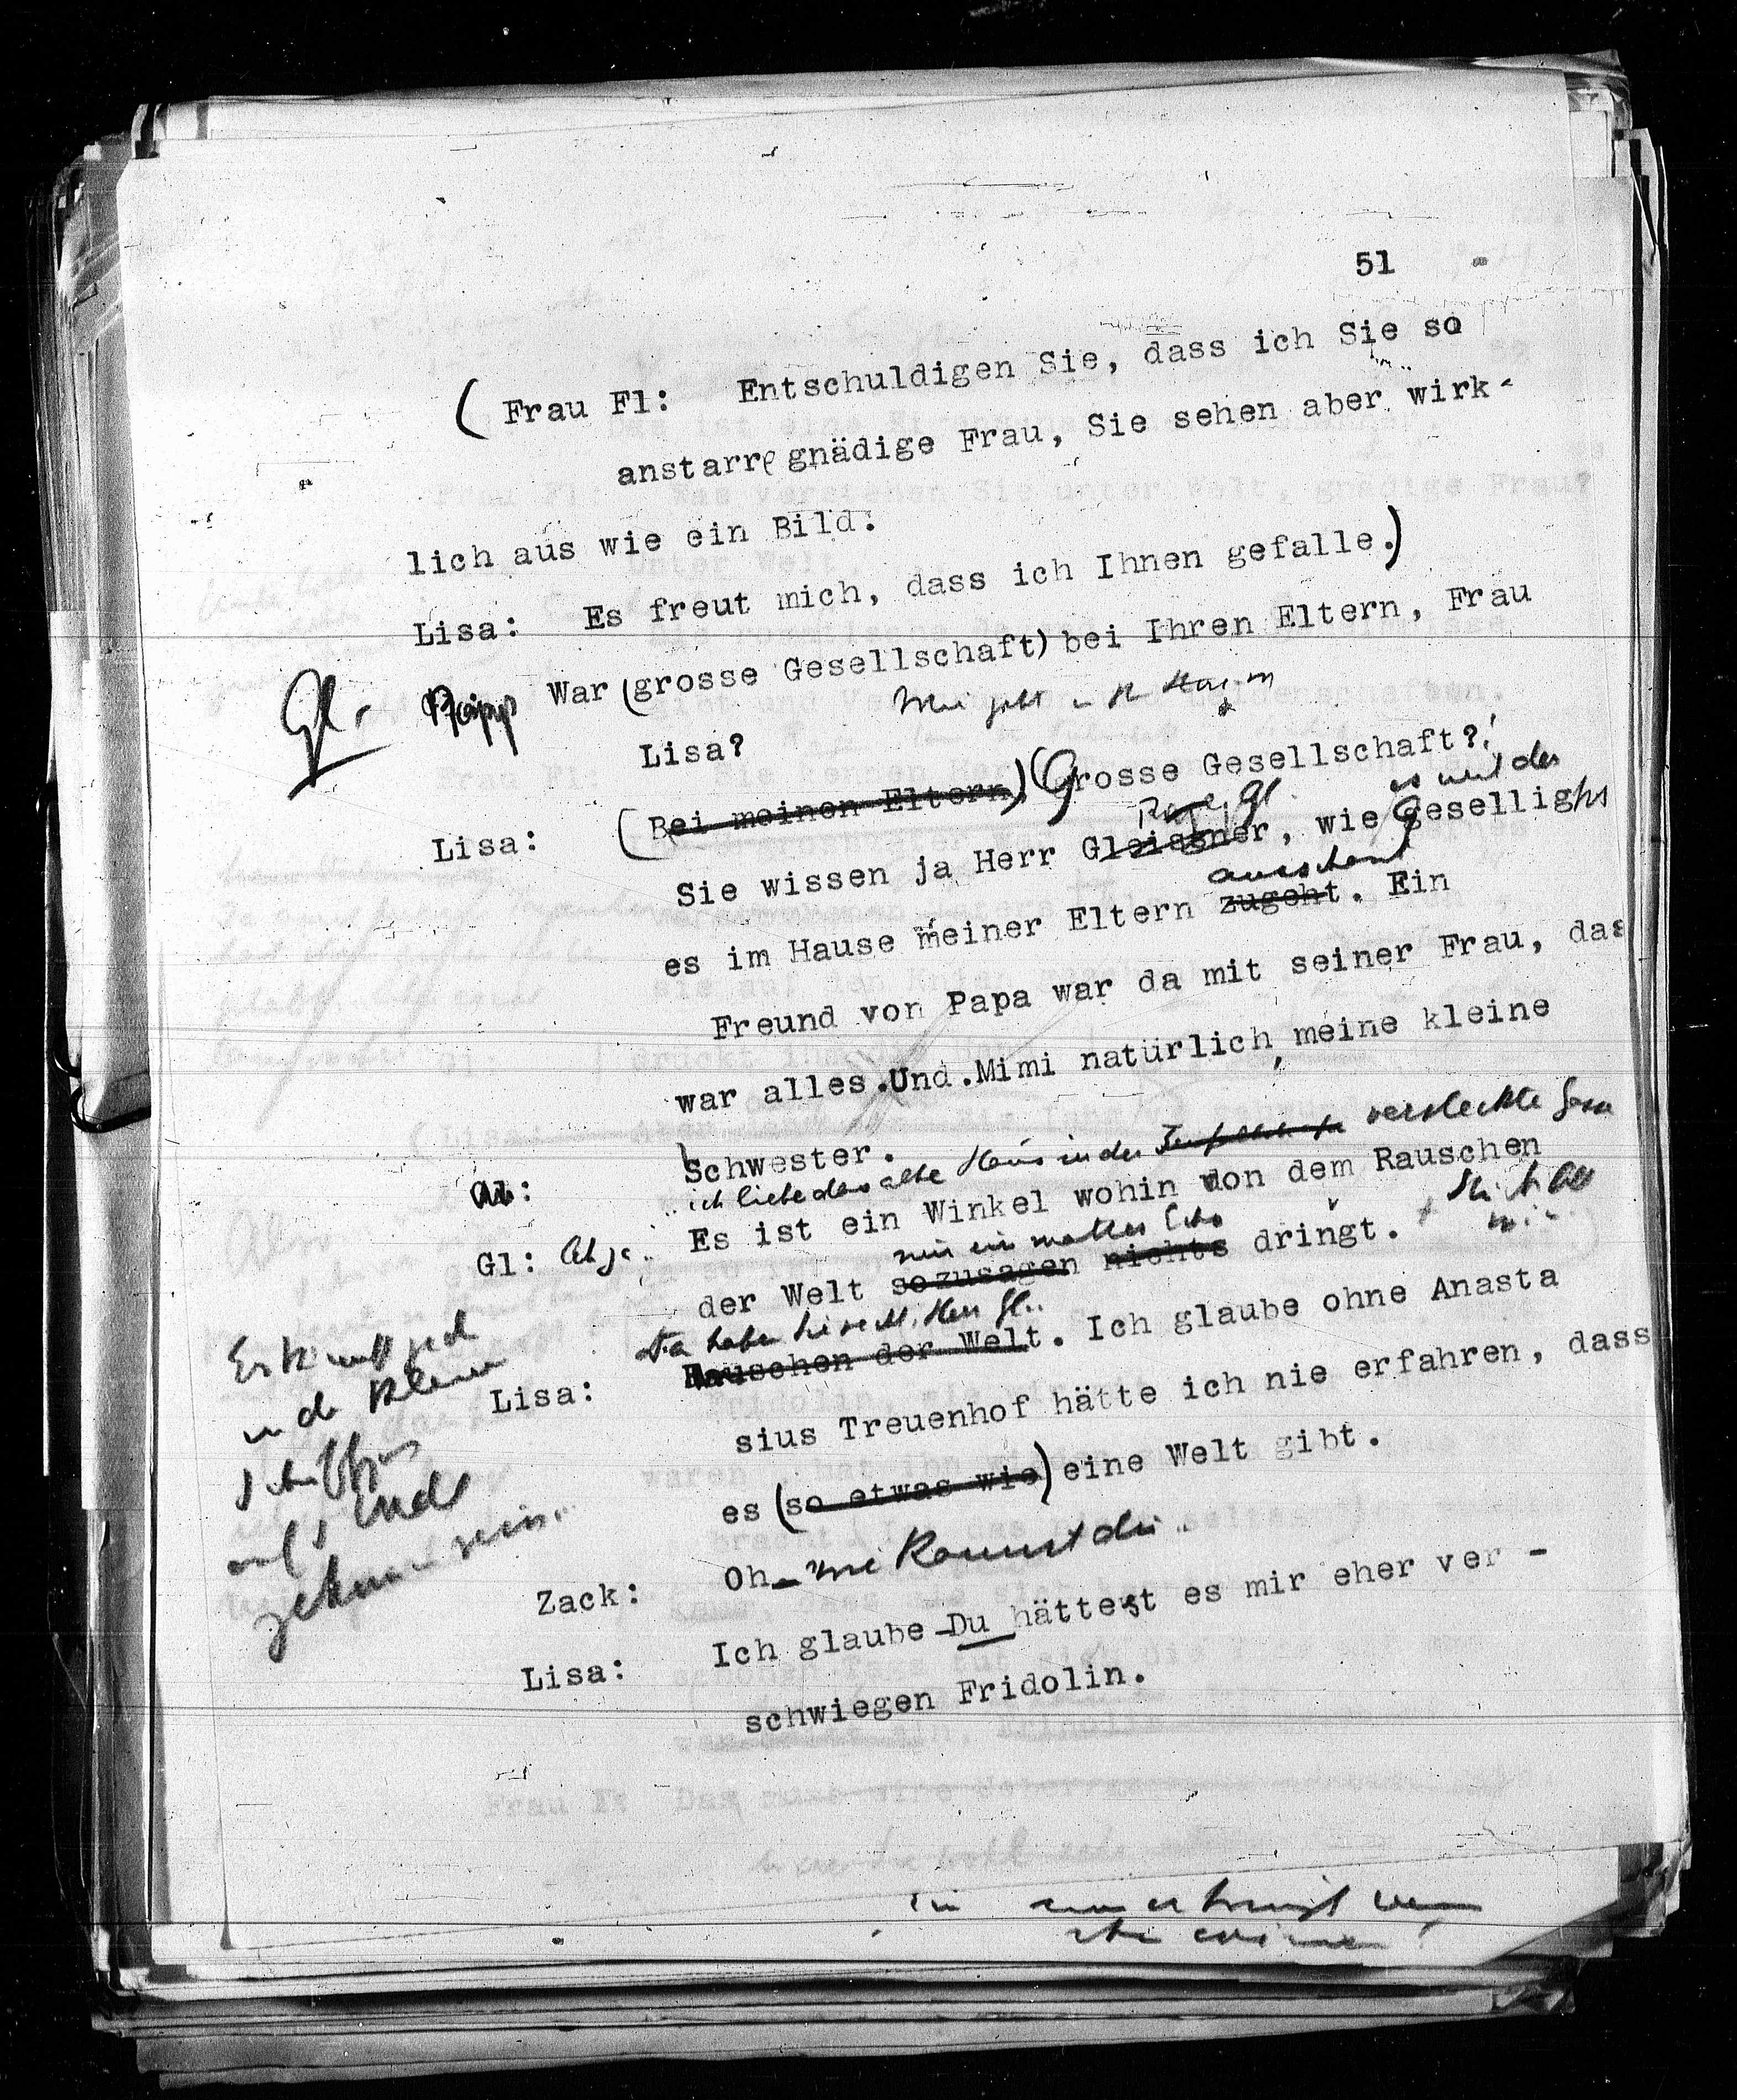 51
( Frau Fl: Entschuldigen Sie, dass ich Sie so
anstarre gnädige Frau, Sie sehen aber wirk-
lich aus wie ein Bild.
Lisa: Es freut mich, dass ich Ihnen gefalle.)
Gl. War (grosse Gesellschaft) bei Ihren Eltern, Frau
Lisa?
Lisa: (Bei meinen Eltern) (Grosse Gesellschaft?!
es mit der
Sie wissen ja Herr Gleissner, wie Geselligkt
ausschaut
es im Hause meiner Eltern zugeht. Ein
Freund von Papa war da mit seiner Frau, das
war alles. Und Mimi natürlich, meine kleine
Schwester.
ich liebe das alte Haus in der versteckte
Gl: Ah ja.. Es ist ein Winkel wohin von dem Rauschen
nur ein mattes Echo
der Welt sozusagen nichts dringt.
Da haben Sie recht, Herr Gl..
Lisa: Rauschen der Welt. Ich glaube ohne Anasta
sius Treuenhof hätte ich nie erfahren, dass
es (so etwas wie) eine Welt gibt.
Zack: Oh - wie kannst du
Lisa: Ich glaube Du hättest es mir eher ver -
schwiegen Fridolin.